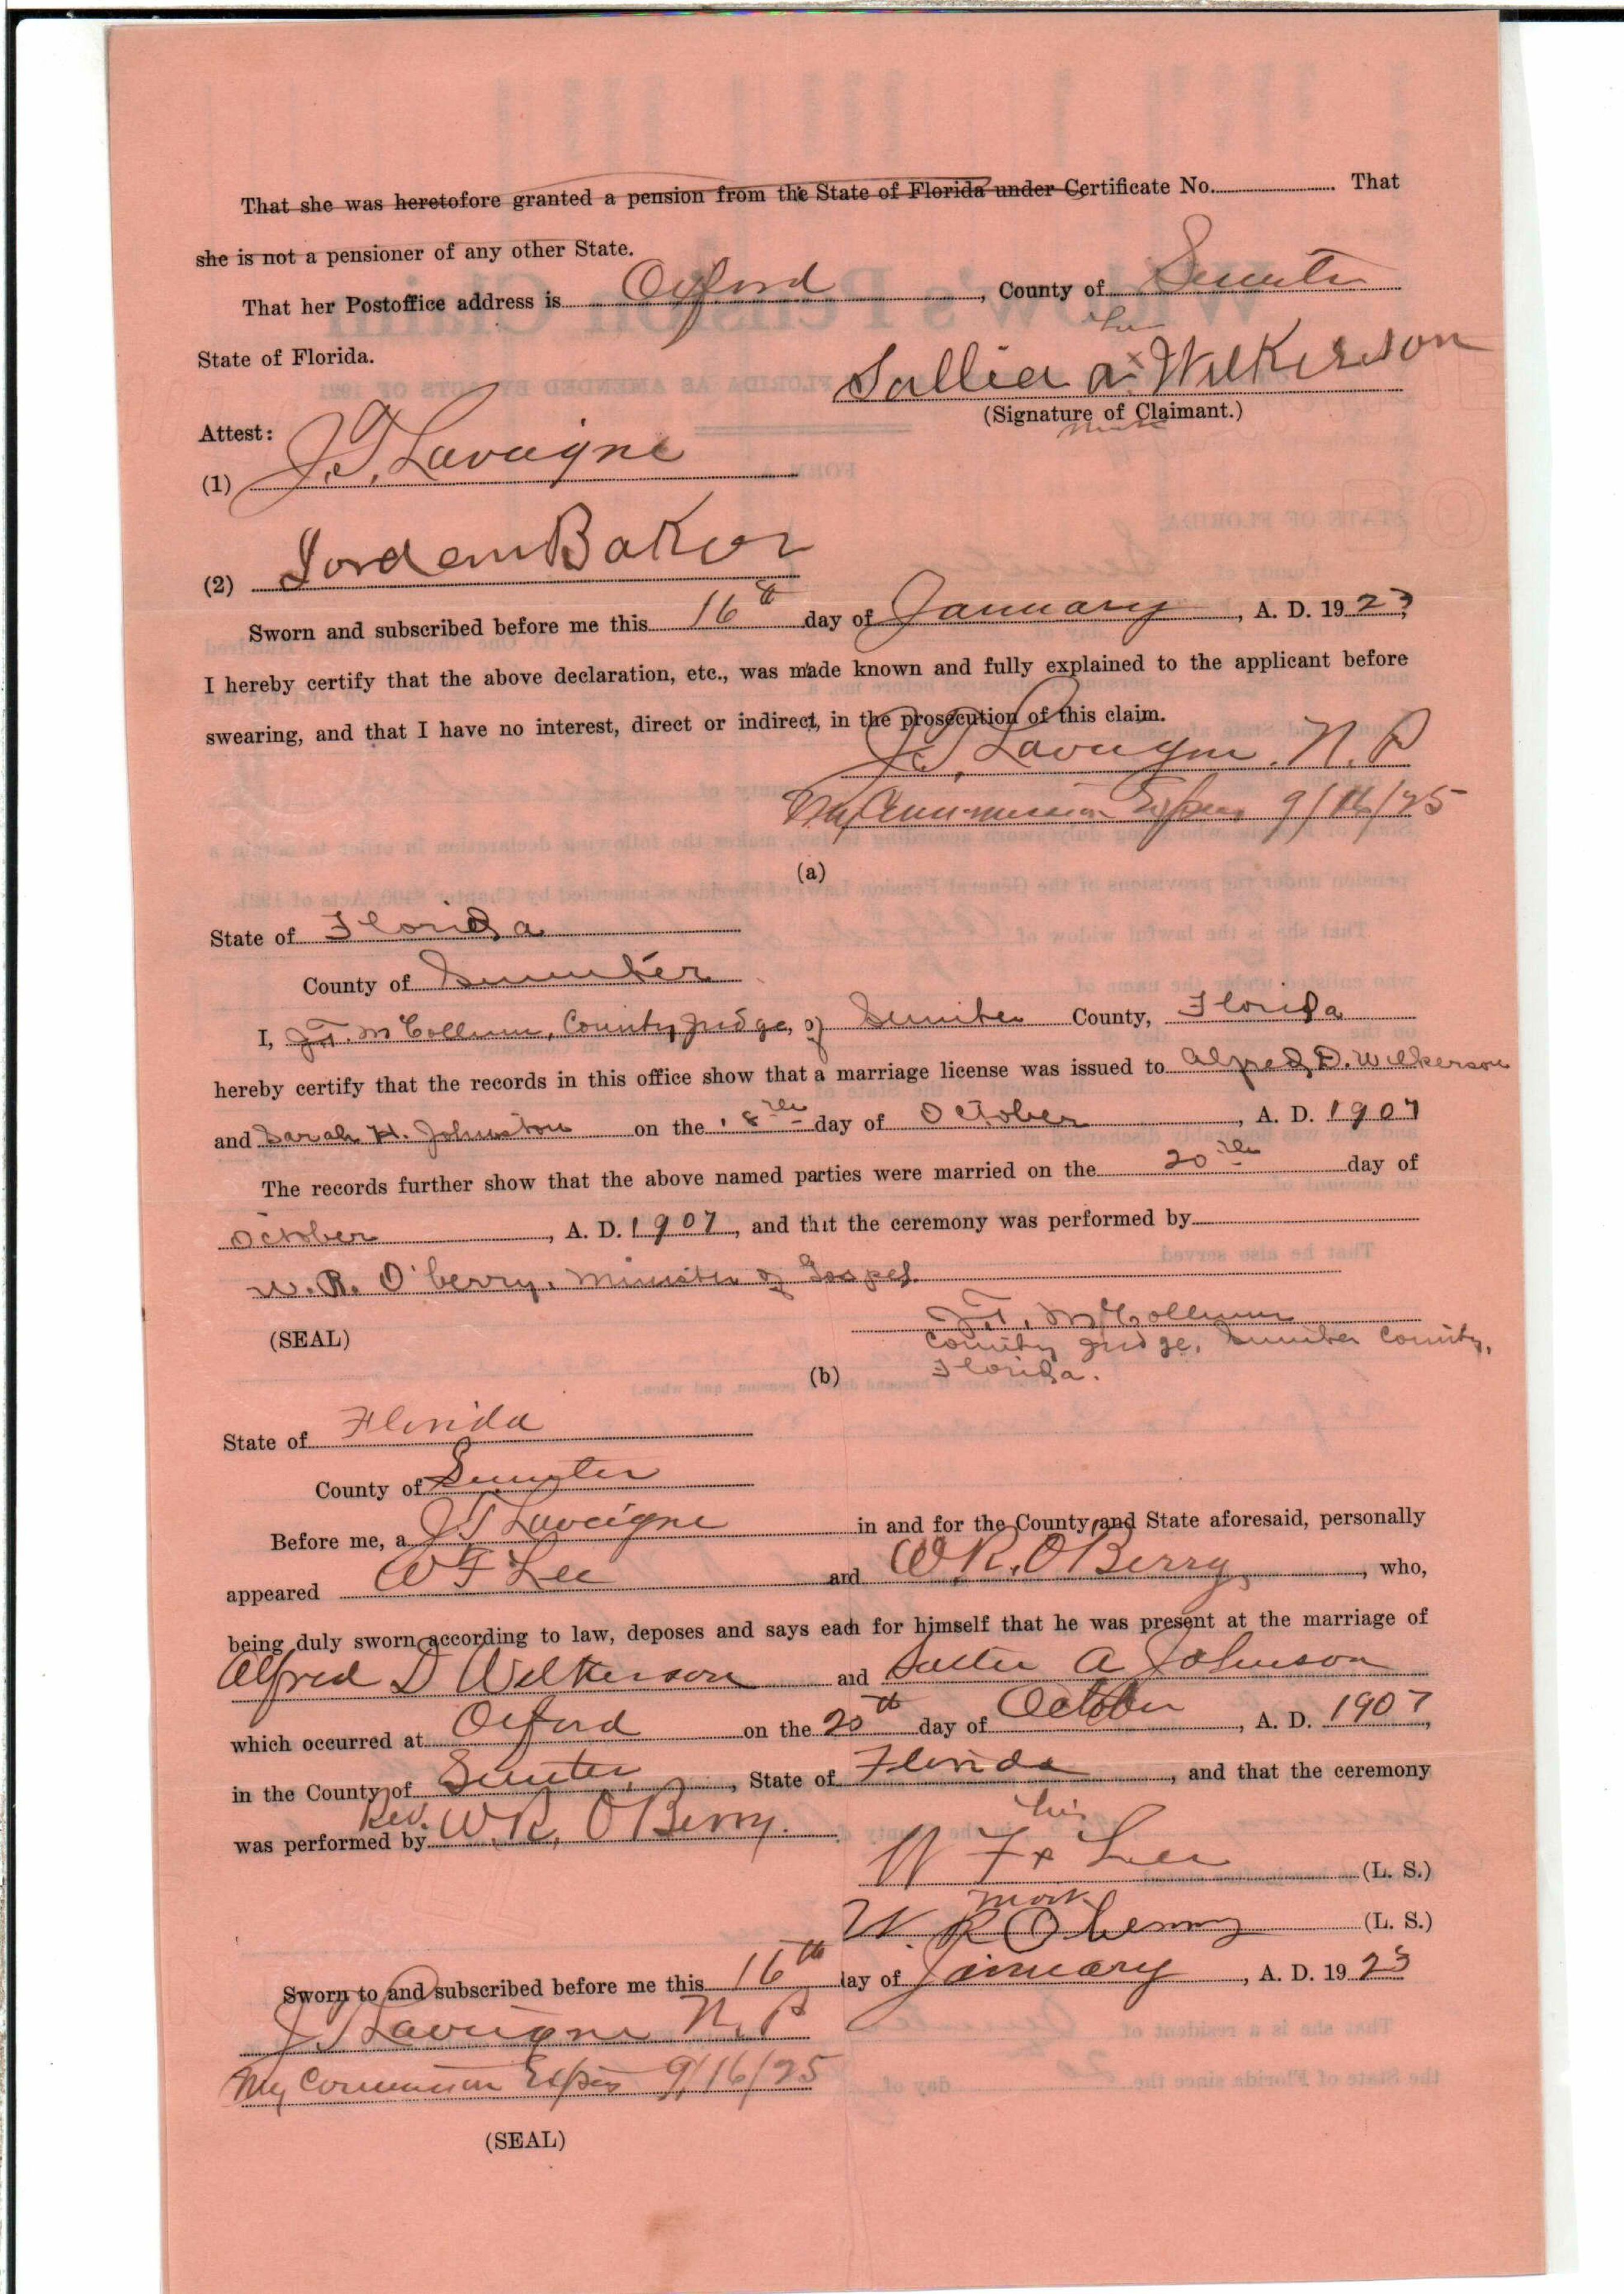 That she was heretofore granted a pension from the State of Florida under Certificate No. That
she is not a pensioner of any other State.
That her Postoffice address is Oxford, County of Sumter
State of Florida.
her
Sallie a x Wilkerson
(Signature of Claimant.)
mark
Attest:
(1) J. T. Lavaigne
(2) Jordan Baker
Sworn and subscribed before me this 16th day of January, A. D. 1923,
I hereby certify that the above declaration, etc., was made known and fully explained to the applicant before
swearing, and that I have no interest, direct or indirect, in the prosecution of this claim.
J. T. Lavaigne. N. P
My Commission Expires 9/16/25
(a)
State of Florida
County of Sumter
I, J.T. McCollum, County Judge, of Sumter County, Florida
hereby certify that the records in this office show that a marriage license was issued to Alfred D. Wilkerson
and Sarah H. Johnston on the 18th day of October, A. D. 1907
The records further show that the above named parties were married on the 20th day of
October, A. D. 1907, and that the ceremony was performed by
W. R. O'berry, Minister of Gospel.
(SEAL)
J.T. McCollum
County Judge, Sumter County,
Florida.
(b)
State of Florida
County of Sumter
Before me, a J T Lavaigne in and for the County and State aforesaid, personally
appeared W F Lee and W. R. O Berry, who,
being duly sworn according to law, deposes and says each for himself that he was present at the marriage of
Alfred D Wilkerson and Sallie A Johnson
which occurred at Oxford on the 20th day of October, A. D. 1907,
in the County of Sumter, State of Florida, and that the ceremony
was performed by Rev. W. R. O Berry.
his
W F x Lee (L. S.)
mark
W. R O berry (L. S.)
Sworn to and subscribed before me this 16th day of January, A. D. 1923
J T Lavaigne N. P
My Commission Expires 9/16/25
(SEAL)